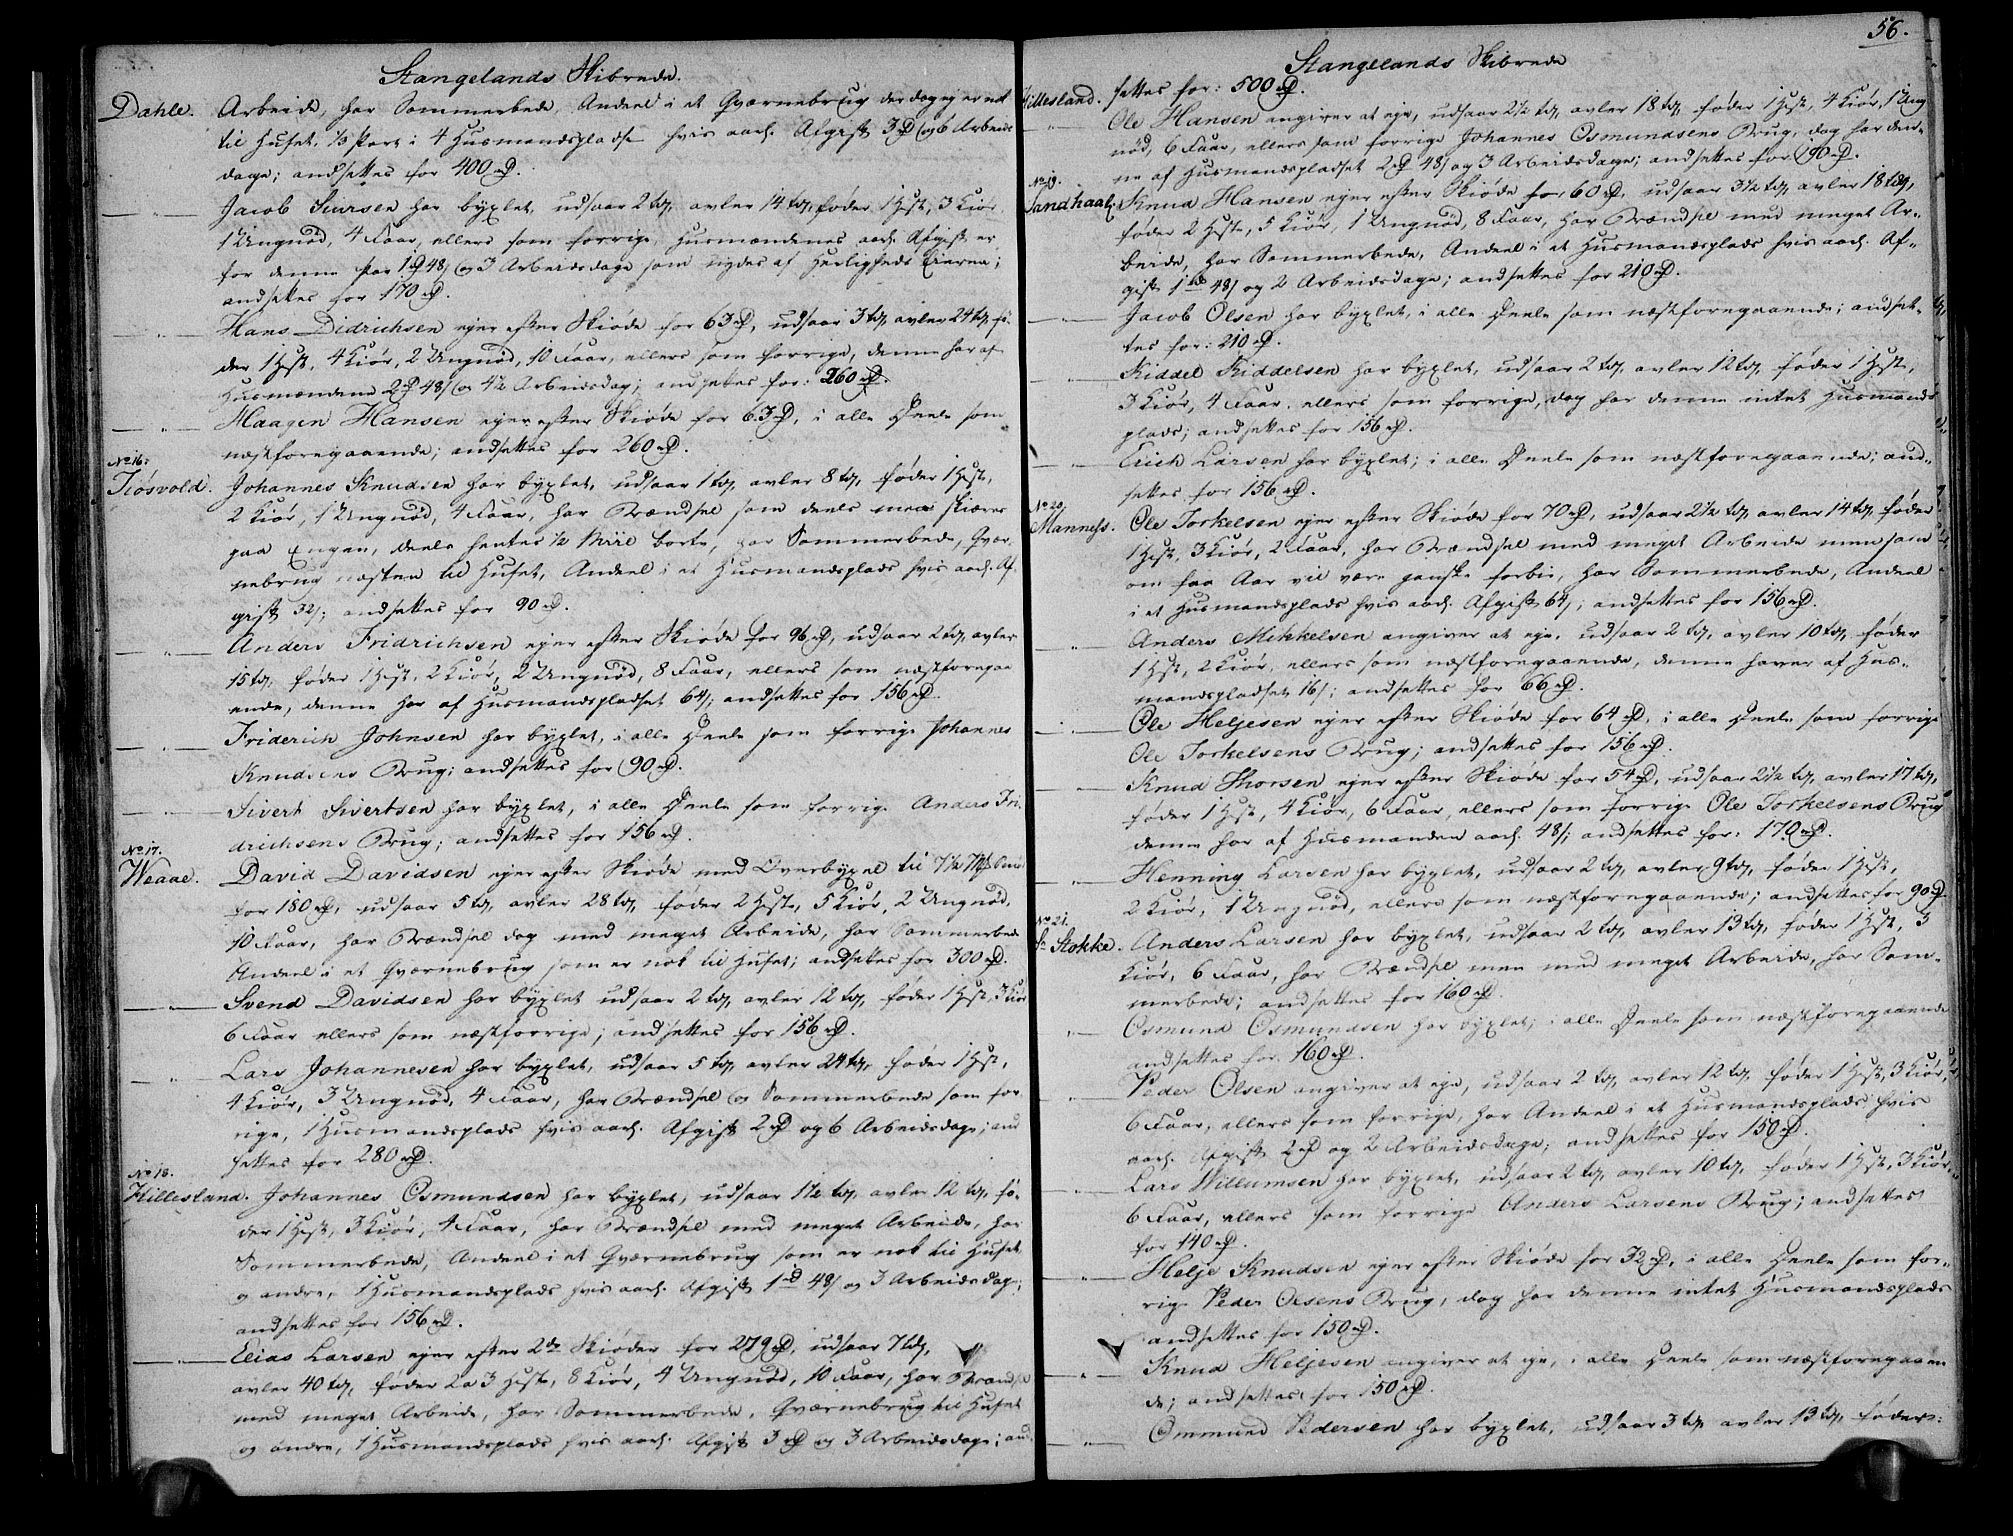 Stangelands Skibrede.
Dahle. Arbeide, har Sommerbede, Andeel i et Qværnebrug der dog ej er nok
til Huset, 1/3 Part i 4 Husmandspladse hvis aarl. Afgift 3 rD og 6 Arbeids
dage; andsettes for 400 rD.
Jacob Siursen har byxlet, udsaar 2 td, avler 14 td, føder 1 Hest, 3 Kiør
1 Ungnød, 4 Faar, ellers som forrige, Husmændenes aarl. Afgift er
for denne Par 1 rD 48 s og 3 Arbeidsdage som nydes af Herligheds Eierne;
andsettes for 170 rD.
Hans Didrichsen ejer efter Skiøde for 63 rD, udsaar 3 td, avler 24 td, fø-
der 1 Hest, 4 Kiør, 2 Ungnød, 10 Faar, ellers som forrige, denne har af
Husmændene 2 rD 48 s og 4 1/2 Arbeidsdag; andsettes for: 260 rD.
Haagen Hansen ejer efter Skiøde for 63 rD, i alle Deele som
næstforegaaende; andsettes for 260 rD.
No 16.
Tiøsvold. Johannes Knudsen har byxlet, udsaar 1 td, avler 8 td, føder 1 Hest,
2 Kiør, 1 Ungnød, 4 Faar, har Brændsel som deels maa skiæres
paa Engen, deels hentes 1/2 Miil borte, har Sommerbede, Qvær-
nebrug næsten til Huset, Andeel i et Husmandsplads hvis aarl. Af-
gift 32 s; andsettes for 90 rD.
Anders Fridrichsen ejer efter Skiøde for 96 rD, udsaar 2 td, avler
15 td, føder 1 Hest, 2 Kiør, 2 Ungnød, 8 Faar, ellers som næstforegaa
ende, denne har af Husmandspladset 64 s; andsettes for 156 rD.
Friderich Johnsen har byxlet, i alle Deele som forrige Johannes
Knudsens Brug; andsettes for 90 rD.
Sivert Sivertsen har byxlet, i alle Deele som forrige Anders Fri-
drichsens Brug; andsettes for 156 rD.
No 17.
Weaae. David Davidsen ejer efter Skiøde med Overbyxel til
for 180 rD, udsaar 5 td, avler 28 td, føder 2 Heste, 5 Kiør, 2 Ungnød,
10 Faar, har Brændsel dog med meget Arbeide, har Sommerbede
Andeel i et Qværnebrug som er nok til Huset; andsettes for 300 rD.
Svend Davidsen har byxlet udsaar 2 td, avler 12 td, føder 1 Hest, 3 Kiør
6 Faar ellers som næstforrige; andsettes for 156 rD.
Lars Johannesen har byxlet, udsaar 5 td, avler 24 td, føder 1 Hest,
4 Kiør, 3 Ungnød, 4 Faar, har Brændsel og Sommerbede som for-
rige, 1 Husmandsplads hvis aarl. Afgift 2 rD og 6 Arbeidsdage; and
settes for 280 rD.
No 18.
Hillesland. Johannes Osmundsen har byxlet, udsaar 1 1/2 td, avler 12 td, fø-
der 1 Hest, 3 Kiør, 4 Faar, har Brændsel med meget Arbeide, har
Sommerbede, Andeel i et Qværnebrug som er nok til Huset
og andre, 1 Husmandsplads hvis aarl. Afgift 1 rD 48 s og 3 Arbeidsdage;
andsettes for 156 rD.
Elias Larsen ejer efter 2de Skiøder for 279 rD, udsaar 7 td,
avler 40 td, føder 2 a 3 Heste, 8 Kiør, 4 Ungnød, 10 Faar, har Brændsel
med meget Arbeide, har Sommerbede, Qværnebrug til Huset
og andre, 1 Husmandsplads hvis aarl. Afgift 3 rD og 3 Arbeidsdage; and
56.
Stangelands Skibrede
Hillesland. settes for: 500 rD.
Ole Hansen angiver at eje, udsaar 2 1/2 td, avler 18 td, føder 1 Hest, 4 Kiør, 1 Ung
nød, 6 Faar, ellers som forrige Johannes Osmundsens Brug, dog har den-
ne af Husmandspladset 2 rD 48 s og 3 Arbeidsdage; andsettes for 190 rD.
No 19.
Sandhaal. Knud Hansen ejer efter Skiøde for 60 rD, udsaar 3 1/2 td, avler 18 td,
føder 2 Heste, 5 Kiør, 1 Ungnød, 8 Faar, har Brændsel med meget Ar-
beide, har Sommerbede, Andeel i et Husmandsplads hvis aarl. Af-
gift 1 rD 48 s og 2 Arbeidsdage; andsettes for 210 rD.
Jacob Olsen har byxlet, i alle Deele som næstforegaaende; andset-
tes for: 210 rD.
Kiddel Kiddelsen har byxlet, udsaar 2 td, avler 12 td, føder 1 Hest,
3 Kiør, 4 Faar, ellers som forrige, dog har denne intet Husmands
plads; andsettes for 156 rD.
Erich Larsen har byxlet; i alle Deele som næstforegaaende; and-
settes for 156 rD.
No 20.
Manness. Ole Torkelsen ejer efter Skiøde for 70 rD, udsaar 2 1/2 td, avler 14 td, føder
1 Hest, 3 Kiør, 2 Faar, har Brændsel med meget Arbeide men som
om faa Aar vil være ganske forbie, har Sommerbede, Andeel
i et Husmandsplads hvis aarl. Afgift 64 s; andsettes for 156 rD.
Anders Mikkelsen angiver at eje, udsaar 2 td, avler 10 td, føder
1 Hest, 2 Kiør, ellers som næstforegaaende, denne haver af Hus-
mandspladset 16 s; andsettes for 66 rD.
Ole Heljesen ejer efter Skiøde for 64 rD, i alle Deele som forrige
Ole Torkelsens Brug; andsettes for 156 rD.
Knud Thorsen ejer efter Skiøde for 54 rD, udsaar 2 1/2 td, avler 17 td,
føder 1 Hest, 4 Kiør, 6 Faar, ellers som forrige Ole Torkelsens Brug
denne har af Husmanden aarl. 48 s; andsettes for: 170 rD.
Henning Larsen har byxlet, udsaar 2 td, avler 9 td, føder 1 Hest,
2 Kiør, 1 Ungnød, ellers som næstforegaaende; andsettes for 90 rD
No 21.
Stokke. Anders Larsen har byxlet, udsaar 2 td, avler 13 td, føder 1 Hest, 3
Kiør, 6 Faar, har Brændsel men med meget Arbeide, har Som-
merbede; andsettes for 160 rD.
Osmund Osmundsen har byxlet; i alle Deele som næstforegaaende
andsettes for 160 rD.
Peder Olsen angiver at eje, udsaar 2 td, avler 12 td, føder 1 Hest, 3 Kiør,
6 Faar, ellers som forrige, har Andeel i et Husmandsplads hvis
aarl. Afgift 2 rD og 2 Arbeidsdage; andsettes for 150 rD.
Lars Willumsen har byxlet, udsaar 2 td, avler 10 td, føder 1 Hest, 3 Kiør,
6 Faar, ellers som forrige Anders Larsens Brug; andsettes
for 140 rD.
Helje Knudsen ejer efter Skiøde for 32 rD, i alle Deele som for-
rige Peder Olsens Brug, dog har denne intet Husmandsplads
andsettes for 150 rD.
Knud Heljesen angiver at eje, i alle Deele som næstforegaaen
de; andsettes for 150 rD.
Ommund Pedersen har byxlet, udsaar 3 td, avler 13 td, føder: